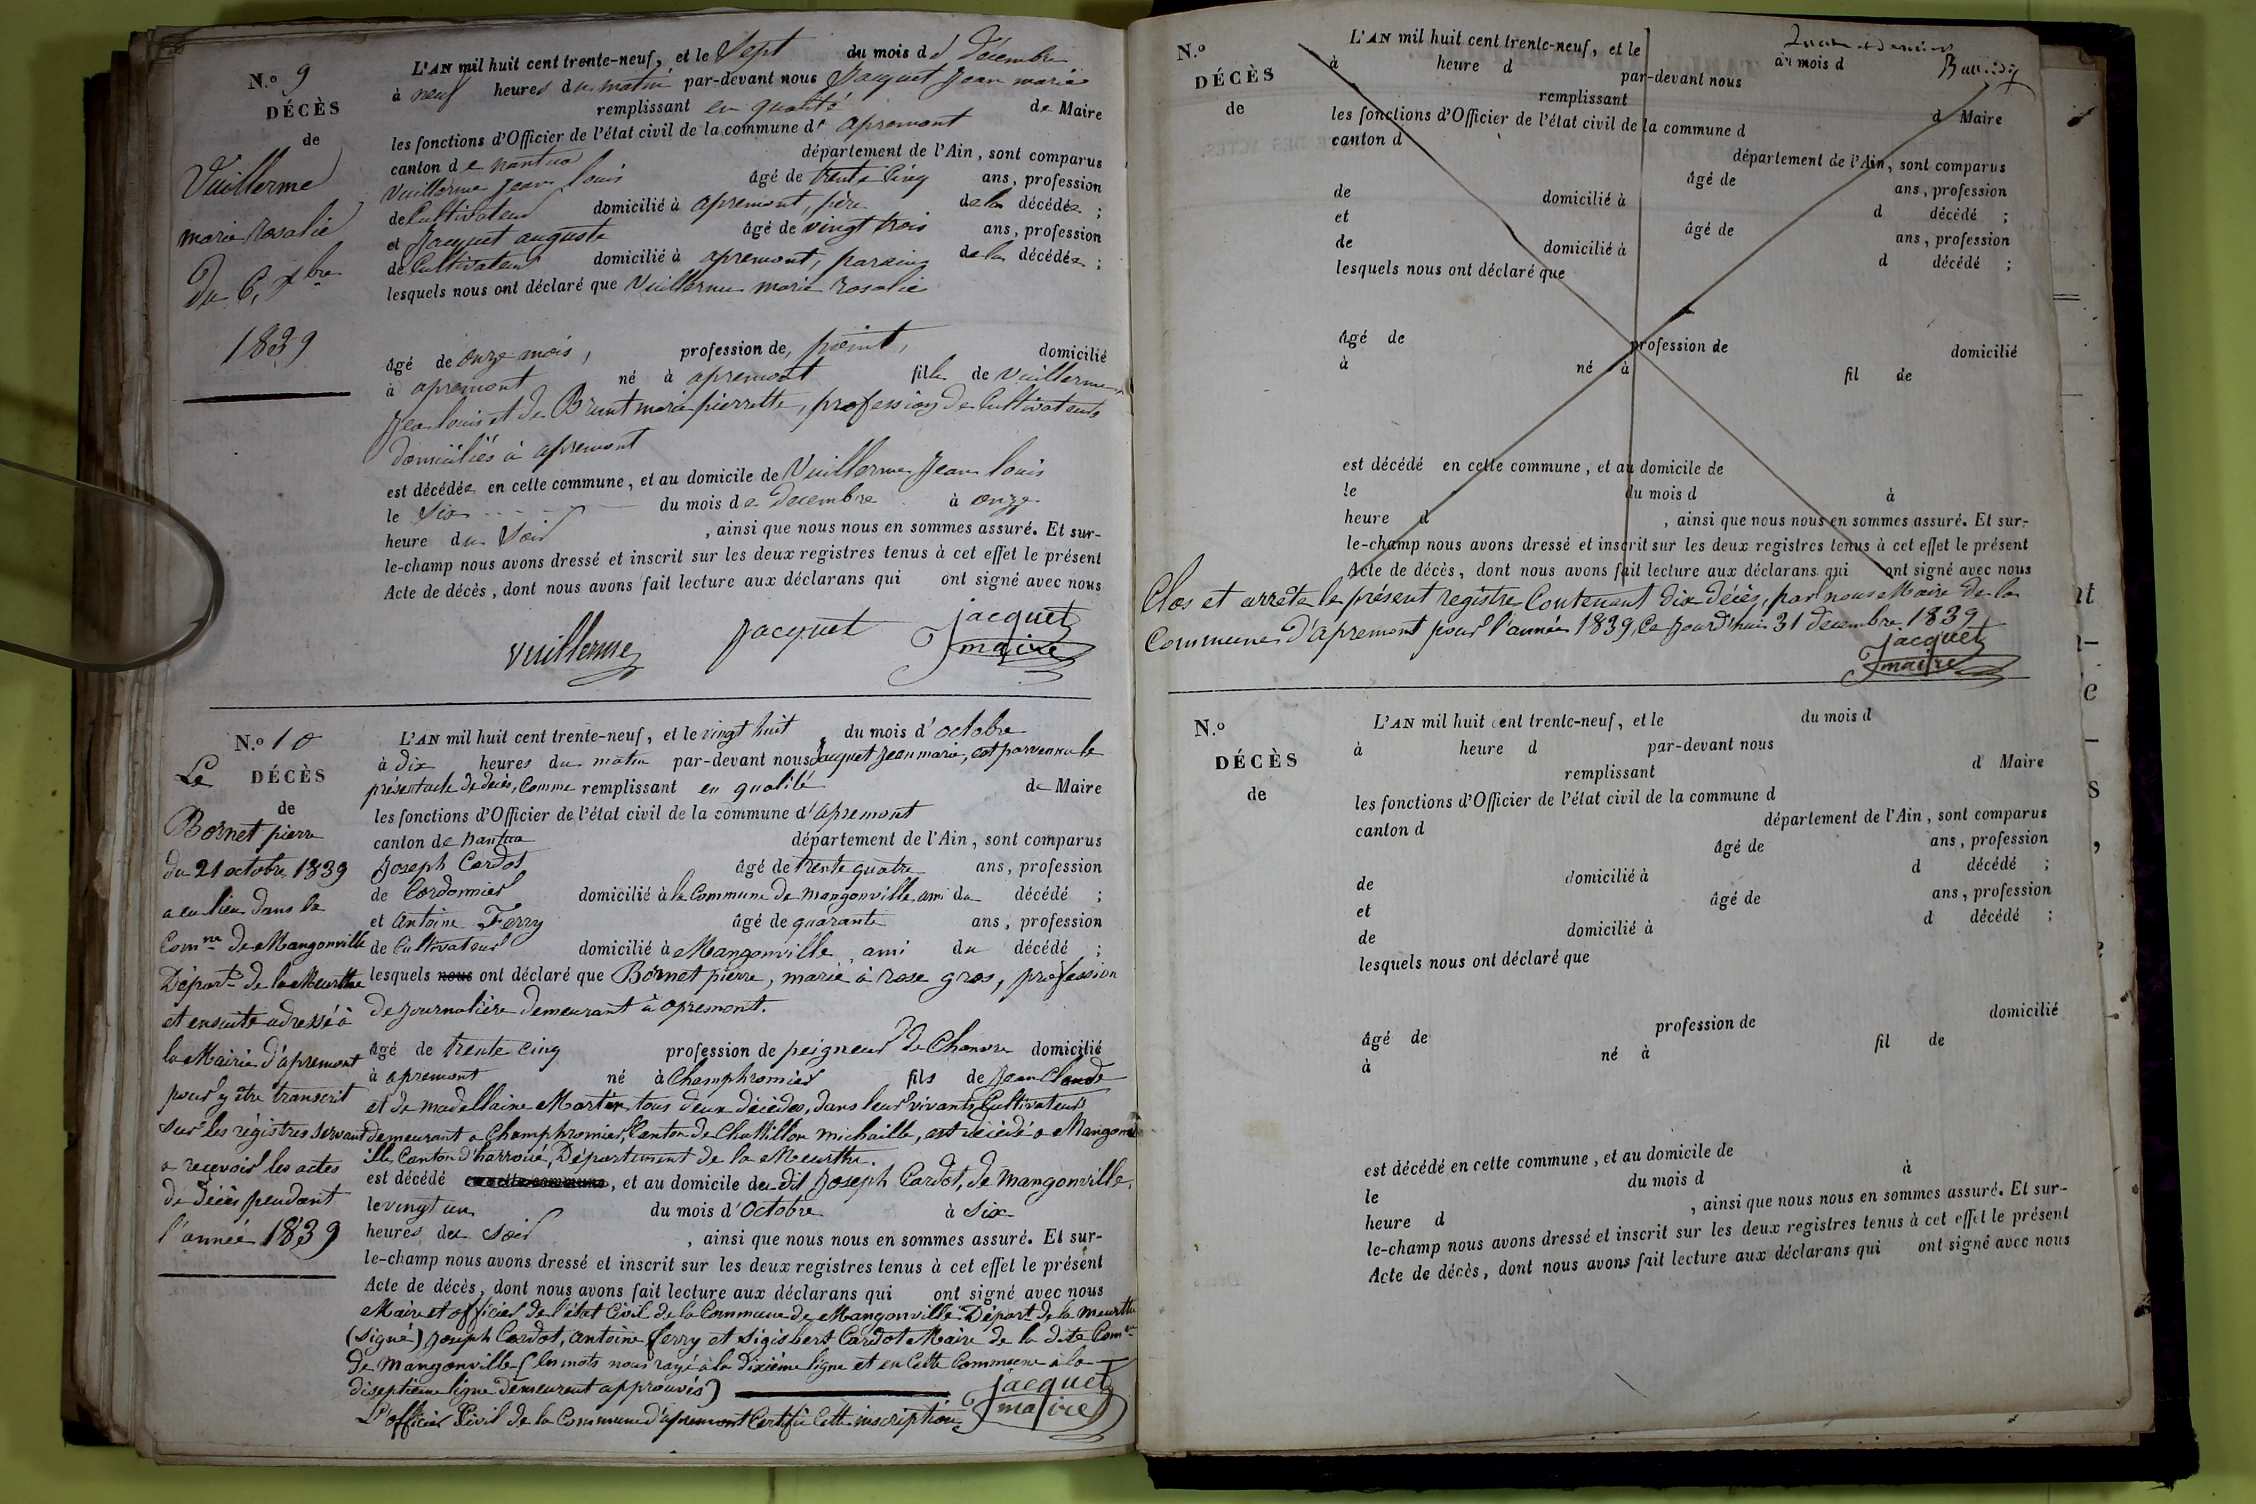 N.º 9
DÉCÈS
de
Vuillerme
marie rosalie
Du 6, Xbre
1839
L'AN mil huit cent trente-neuf, et le Sept du mois de Décembre
à neuf heures du matin par-devant nous Jacquet Jean marie
remplissant en qualité de Maire
les fonctions d'Officier de l'état civil de la commune d' apremont
canton de nantua département de l'Ain, sont comparus
Vuillerme Jean louis âgé de trente cinq ans, profession
de Cultivateur domicilié à apremont, père de la décédée ;
et Jacquet auguste âgé de vingt trois ans, profession
de Cultivateur domicilié à apremont, parain de la décédée ;
lesquels nous ont déclaré que Vuillerme marie rosalie
âgé de onze mois, profession de, point, domicilié
à apremont né à apremont fille de Vuillerme
Jean louis et de Brunt marie pierrette, profession de Cultivateurs
domiciliés à apremont
est décédée en cette commune, et au domicile de Vuillerme Jean louis
le Six du mois de Decembre à onze
heure du Soir , ainsi que nous nous en sommes assuré. Et sur-
le-champ nous avons dressé et inscrit sur les deux registres tenus à cet effet le présent
Acte de décès, dont nous avons fait lecture aux déclarans qui ont signé avec nous
Vuillerme Jacquet Jacquet
maire
N.º 10
Le DÉCÈS
de
Bornet pierre
du 21 octobre 1839
a eu lieu dans la
Comne de Mangonville
Départ. de la Meurthe
et ensuite adressé à
la Mairie d'apremont
pour y être transcrit
Sur les régistres servant
a recevoir les actes
de décès pendant
l'année 1839
L'AN mil huit cent trente-neuf, et le vingt huit du mois d'octobre
à dix heures du matin par-devant nous Jacquet Jean marie, est parvenu le
présent acte de décès, Comme remplissant en qualité de Maire
les fonctions d'Officier de l'état civil de la commune d'apremont
canton de nantua département de l'Ain, sont comparus
Joseph Cardot âgé de trente quatre ans, profession
de Cordonnier domicilié à la Commune de mangonville, ami du décédé ;
et Antoine Ferry âgé de quarante ans, profession
de Cultivateur domicilié à Mangonville, ami du décédé ;
lesquels nous ont déclaré que Bornet pierre, marié à rose gros, profession
de journalière demeurant à apremont.
âgé de trente cinq profession de peigneur de Chanvre domicilié
à apremont né à Champhromier fils de Jean Claude
et de madellaine Martin tous deux décédés, dans leur vivants Cultivateurs
demeurant a Champhromier, Canton de Chatillon michaille, est décédé a Mangonv
ille Canton d'harroué, Département de la Meurthe.
est décédé en cette commune, et au domicile du dit Joseph Cardot, de mangonville,
le vingt un du mois d'Octobre à Six
heures du soir , ainsi que nous nous en sommes assuré. Et sur-
le-champ nous avons dressé et inscrit sur les deux registres tenus à cet effet le présent
Acte de décès, dont nous avons fait lecture aux déclarans qui ont signé avec nous
Maire et officier de l'état Civil de la Commune de Mangonville Départ. de la meurthe
(Signé) Joseph Cardot, Antoine ferry et Sigisbert Cardot Maire de la dite Comne
de Mangonville (les mots nous rayé à la dixième ligne et en Cette Commune à la
diseptième ligne demeurent approuvés)
L'officier Civil de la Commune d'apremont Certifie Cette inscription
Jacquet
maire
N.º
DÉCÈS
de
L'AN mil huit cent trente-neuf, et le du mois d
à heure d par-devant nous
remplissant d Maire
les fonctions d'Officier de l'état civil de la commune d
canton d département de l'Ain, sont comparus
âgé de ans, profession
de domicilié à d décédé ;
et âgé de ans, profession
de domicilié à d décédé ;
lesquels nous ont déclaré que
âgé de profession de domicilié
à né à fil de
est décédé en cette commune, et au domicile de
le du mois d à
heure d , ainsi que nous nous en sommes assuré. Et sur-
le-champ nous avons dressé et inscrit sur les deux registres tenus à cet effet le présent
Acte de décès, dont nous avons fait lecture aux déclarans qui ont signé avec nous
Clos et arrêté le présent registre Contenant dix décès, par nous Maire de la
Commune d'apremont pour l'année 1839, Ce jourd'hui 31 decembre 1839
Jacquet
maire
N.º
DÉCÈS
de
L'AN mil huit cent trente-neuf, et le du mois d
à heure d par-devant nous
remplissant d Maire
les fonctions d'Officier de l'état civil de la commune d
canton d département de l'Ain, sont comparus
âgé de ans, profession
de domicilié à d décédé ;
et âgé de ans, profession
de domicilié à d décédé ;
lesquels nous ont déclaré que
âgé de profession de domicilié
à né à fil de
est décédé en cette commune, et au domicile de
le du mois d à
heure d , ainsi que nous nous en sommes assuré. Et sur-
le-champ nous avons dressé et inscrit sur les deux registres tenus à cet effet le présent
Acte de décès, dont nous avons fait lecture aux déclarans qui ont signé avec nous